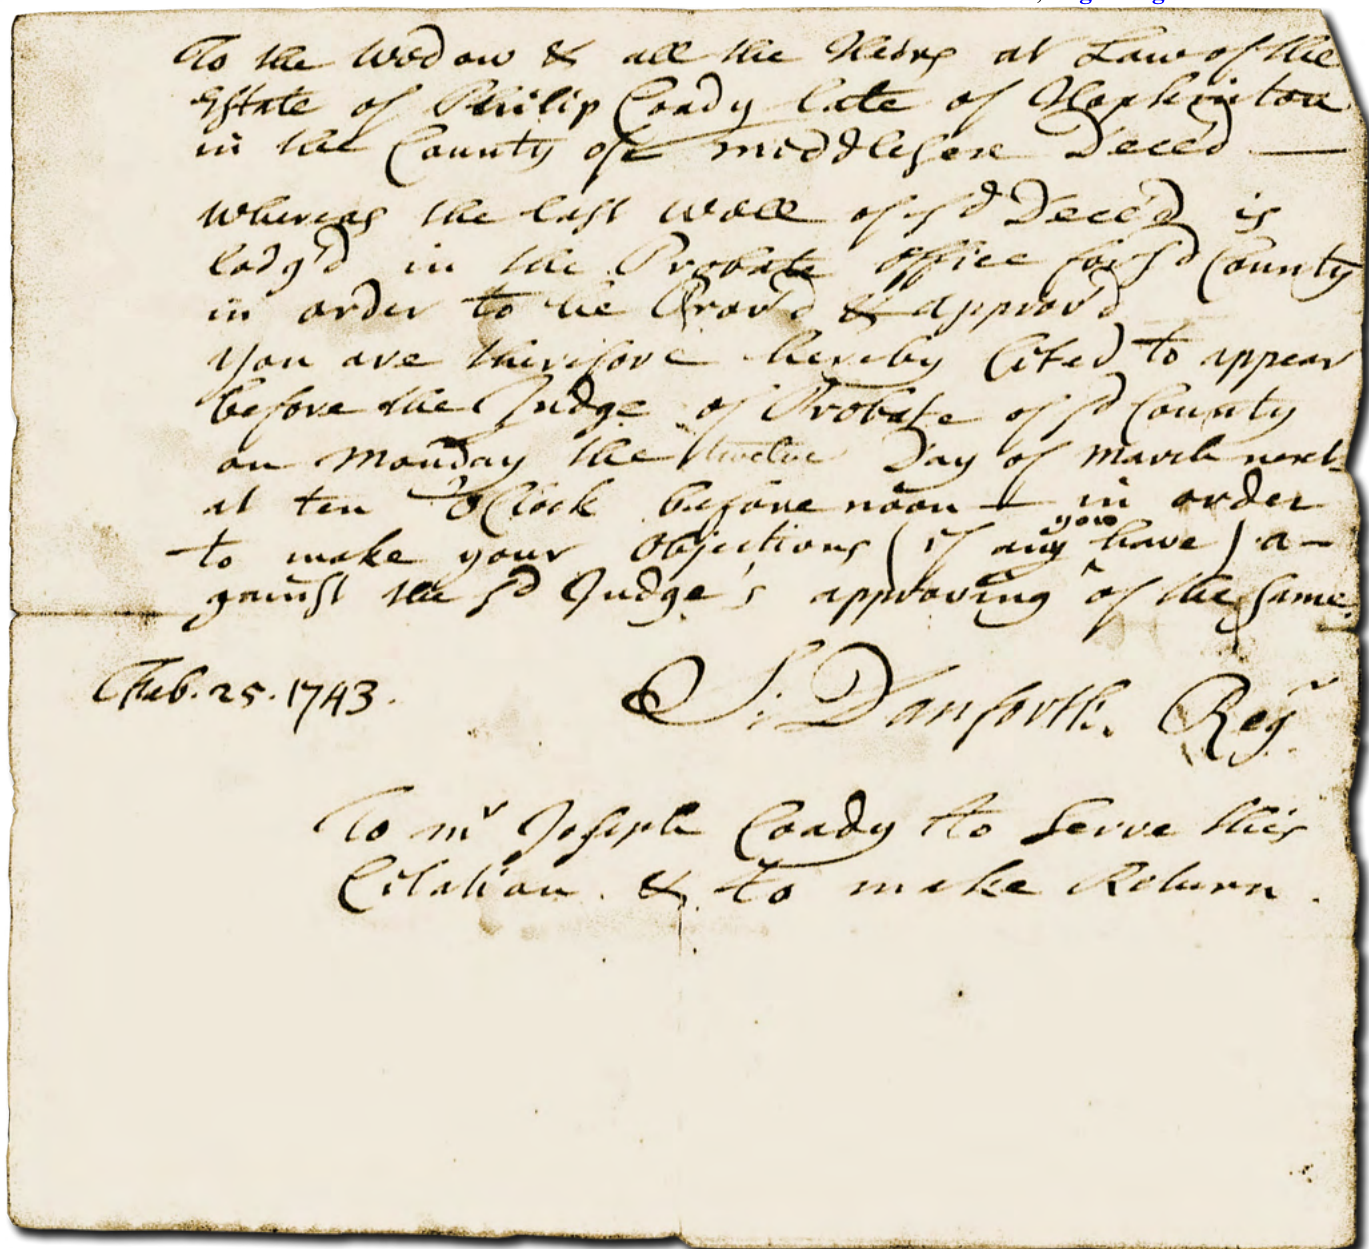 To the Widow & all the Heirs at Law of the
Estate of Philip Coady late of Hopkinton
in the County of middlesex Deced
Whereas the last Will of sd Deced is
lodg'd in the Probate office for sd County
in order to be Prov'd & approv'd
you are therefore hereby Cited to appear
before the Judge of Probate of sd County
on monday the twelve Day of march next
at ten oClock before noon in order
you
to make your Objections (if any have) a-
gainst the sd Judge's approving of the same.
Feb. 25. 1743.
S. Danforth. Regr
To mr Joseph Coady to Serve this
Citation & to make Return.